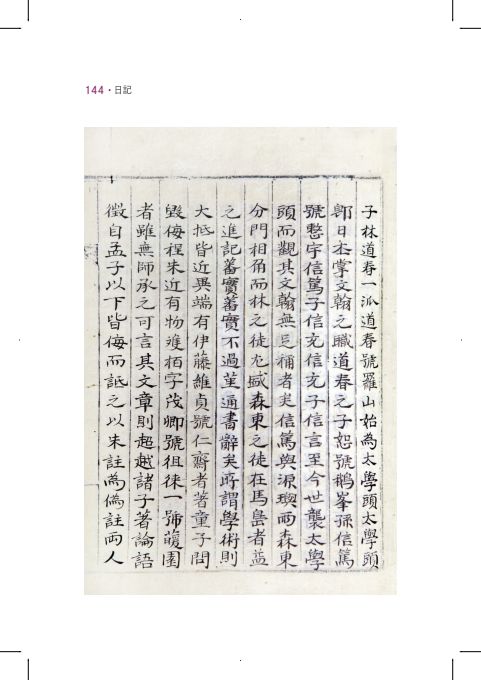 144 · 日記
子林道春一派道春號羅山始為太學頭太學頭
鄭曰丕掌文翰之職道春之子恕號鵝峯孫信篤
號整宇信篤子信充信充子信言至今世襲太學
頭而觀其文翰無足稱者矣信篤與源璵兩森東
分門相角而林之徒尤盛森東之徒在馬島者益
之進記蕃實蕃實不過菫通書辭矣所謂學術則
大抵皆近異端有伊藤維貞號仁齋者著童子問
毀侮程朱近有物雙栢字茂卿號徂徠一號蘐園
者雖無師承之可言其文章則超越諸子著論語
徵自孟子以下皆侮而詆之以朱註為偽註兩人